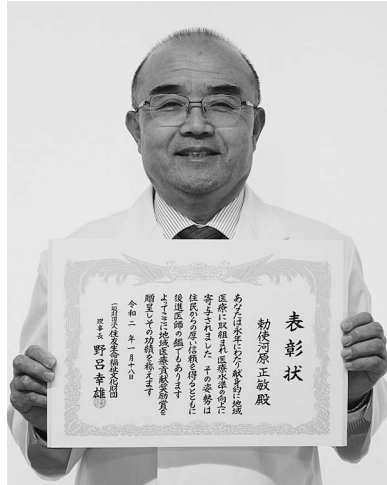 表彰状
勅使河原 正敏 殿
あなたは永年にわたり献身的に地域
医療に取組まれ医療水準の向上に
寄与されました その姿勢は
住民からの厚い信頼を得るとともに
後進医師の鑑でもあります
よってここに地域医療貢献奨励賞を
贈呈しその功績を称えます
令和二年一月十八日
一般財団法人住友生命福祉文化財団
理事長 野呂幸雄